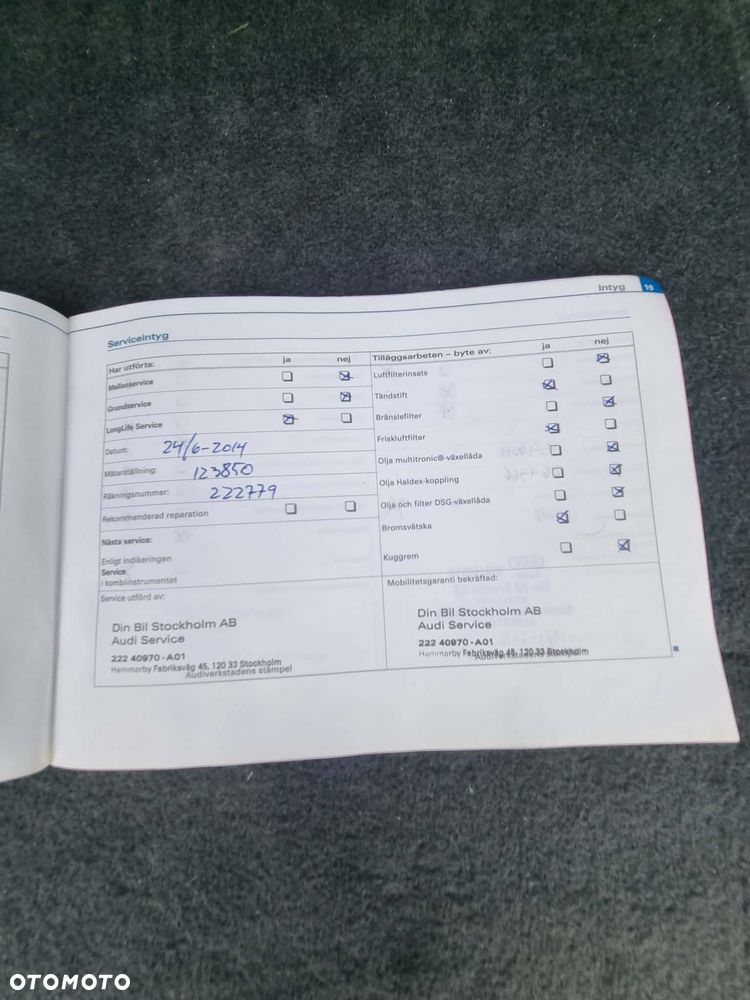 Intyg 19
Serviceintyg
Har utförts: ja nej
Mellanservice
Grundservice
LongLife Service
Datum: 24/6-2014
Mätarställning: 123850
Räkningsnummer: 222779
Rekommenderad reparation
Nästa service:
Enligt indikeringen
Service
i kombiinstrumentet
Service utförd av:
Din Bil Stockholm AB
Audi Service
222 40970-A01
Hammarby Fabriksväg 45, 120 33 Stockholm
Audiverkstadens stämpel
Tilläggsarbeten – byte av: ja nej
Luftfilterinsats
Tändstift
Bränslefilter
Friskluftfilter
Olja multitronic®-växellåda
Olja Haldex-koppling
Olja och filter DSG-växellåda
Bromsvätska
Kuggrem
Mobilitetsgaranti bekräftad:
Din Bil Stockholm AB
Audi Service
222 40970-A01
Hammarby Fabriksväg 45, 120 33 Stockholm
Audiverkstadens stämpel
OTOMOTO